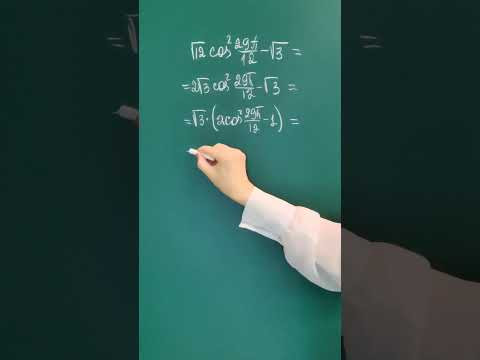 √12 cos² 29π/12 - √3 =
= 2√3 cos² 29π/12 - √3 =
= √3 · (2cos² 29π/12 - 1) =